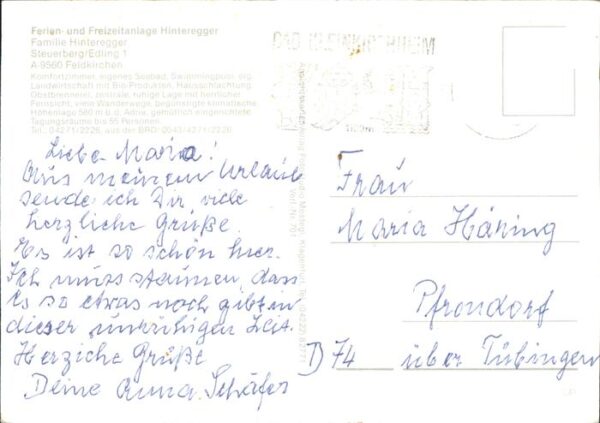 Ferien- und Freizeitanlage Hinteregger
Familie Hinteregger
Steuerberg/Edling 1
A-9560 Feldkirchen
Komfortzimmer, eigenes Seebad, Swimmingpool, erg.
Landwirtschaft mit Bio-Produkten, Hausschlachtung,
Obstbrennerei, zentrale, ruhige Lage mit herrlicher
Fernsicht, viele Wanderwege, begünstigte klimatische
Höhenlage 580 m ü. d. Adria, gemütlich eingerichtete
Tagungsräume bis 55 Personen.
Tel. 04271/2226, aus der BRD: 0043/4271/2226
Liebe Maria!
Aus meinem Urlaub
sende ich Dir viele
herzliche Grüße.
Es ist so schön hier.
Ich muss staunen, dass
es so etwas noch gibt in
dieser unruhigen Zeit.
Herziche Grüße
Deine Anna Schäfer
BAD KLEINKIRCHHEIM
Frau
Maria Häring
Pfrondorf
D 74 über Tübingen